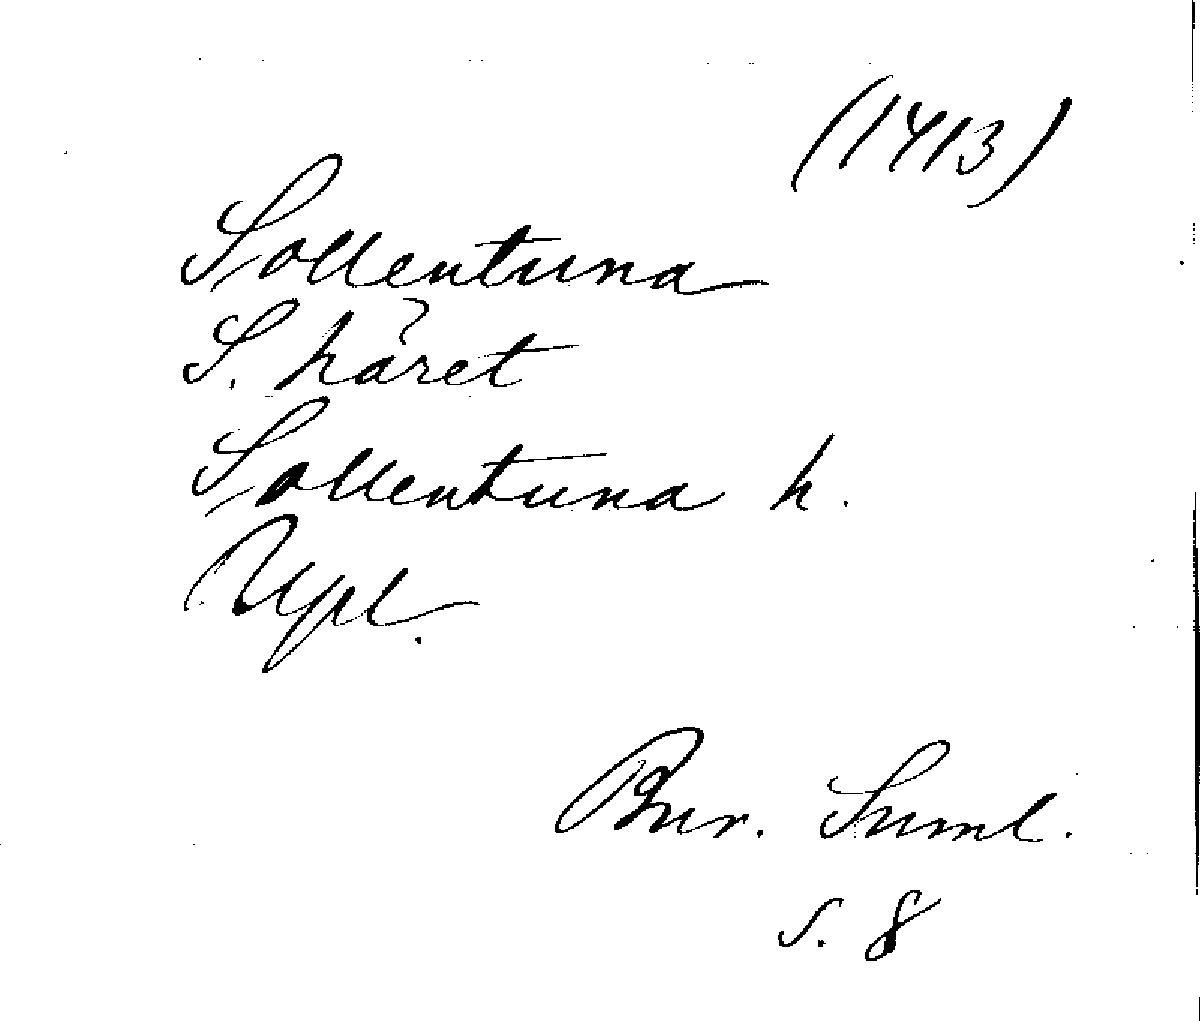 (1413)
Sollentuna
S. häret
Sollentuna h.
Upl.
Bur. Suml.
s. 8